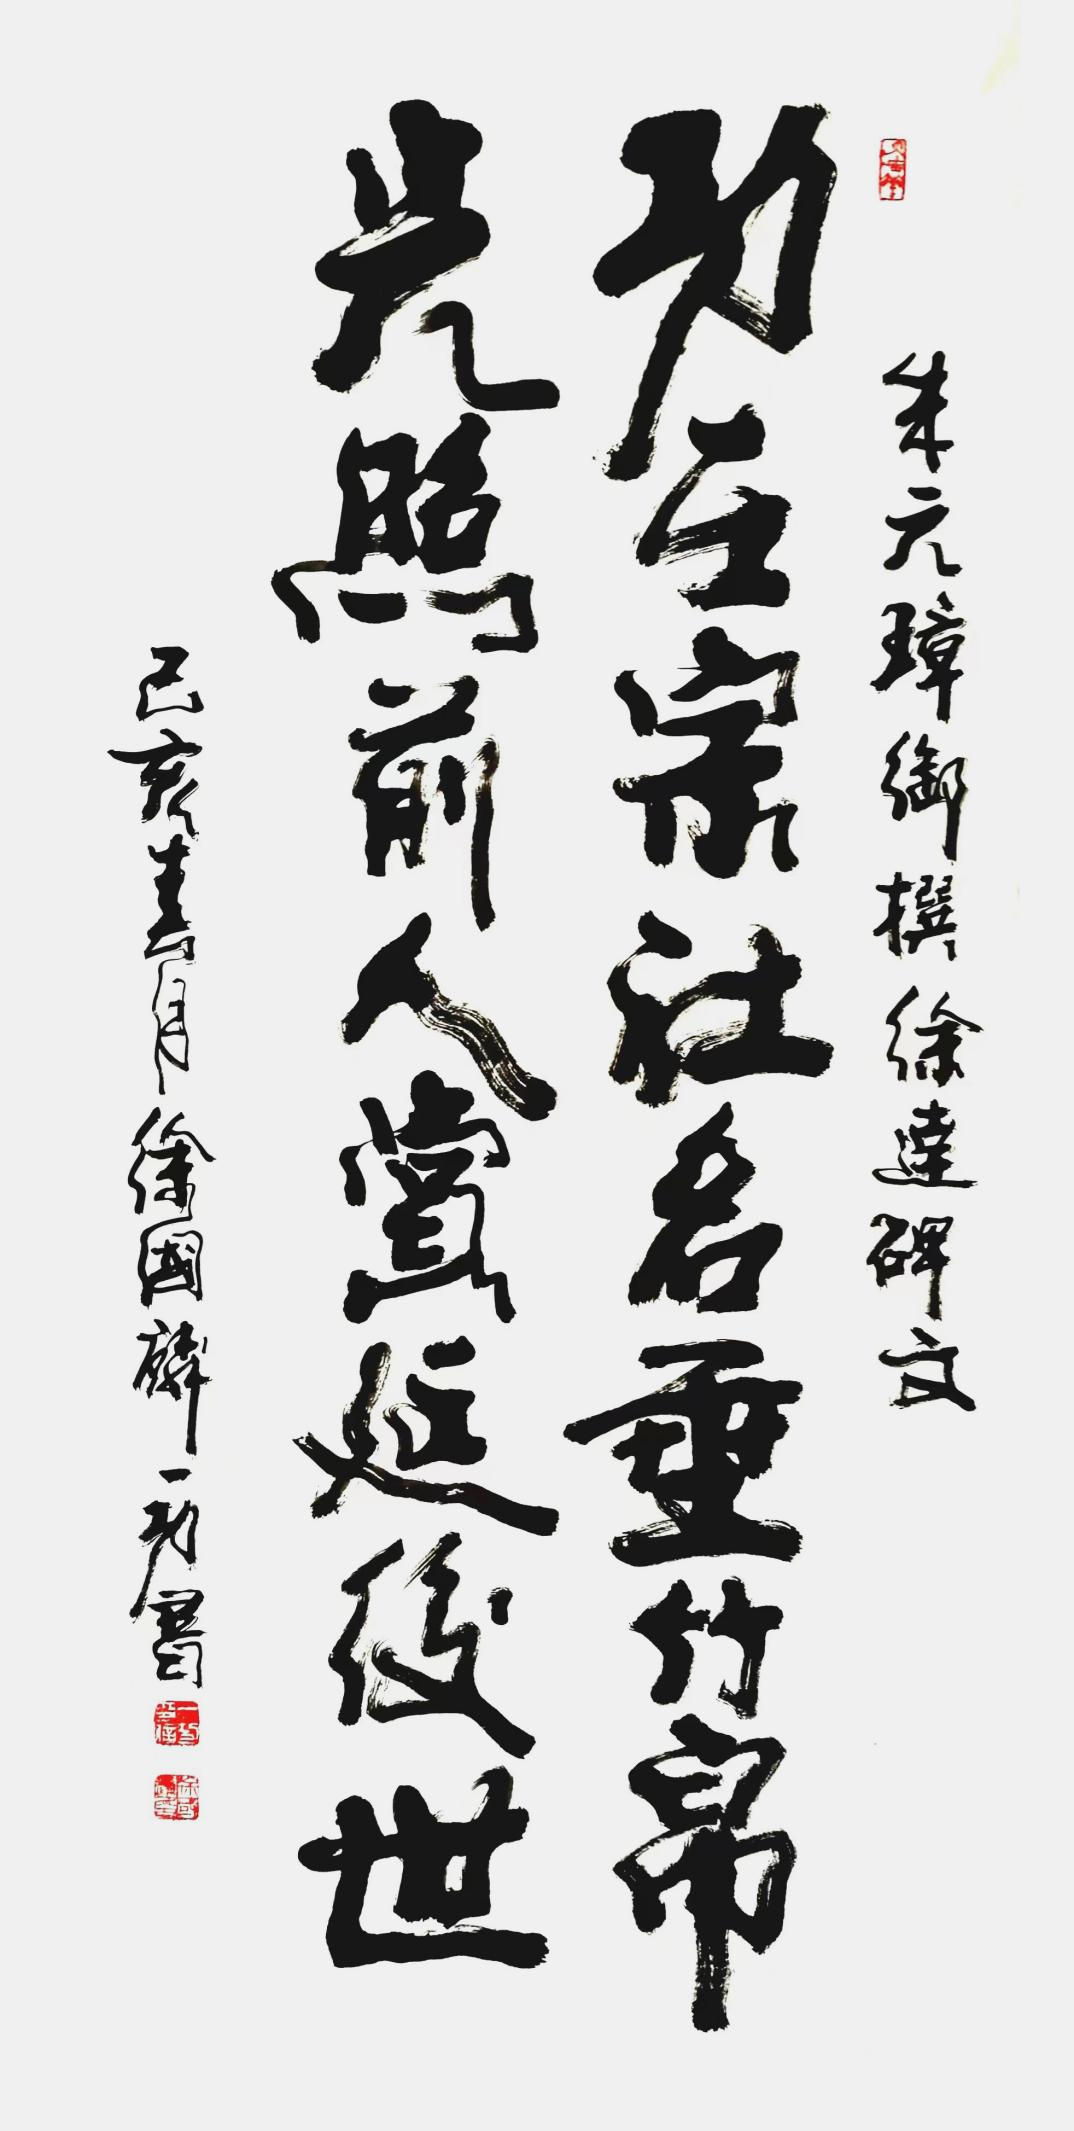 朱元璋御撰徐達碑文
功在宗社名垂竹帛
光照前人賞延後世
己亥春月徐國麟一功書